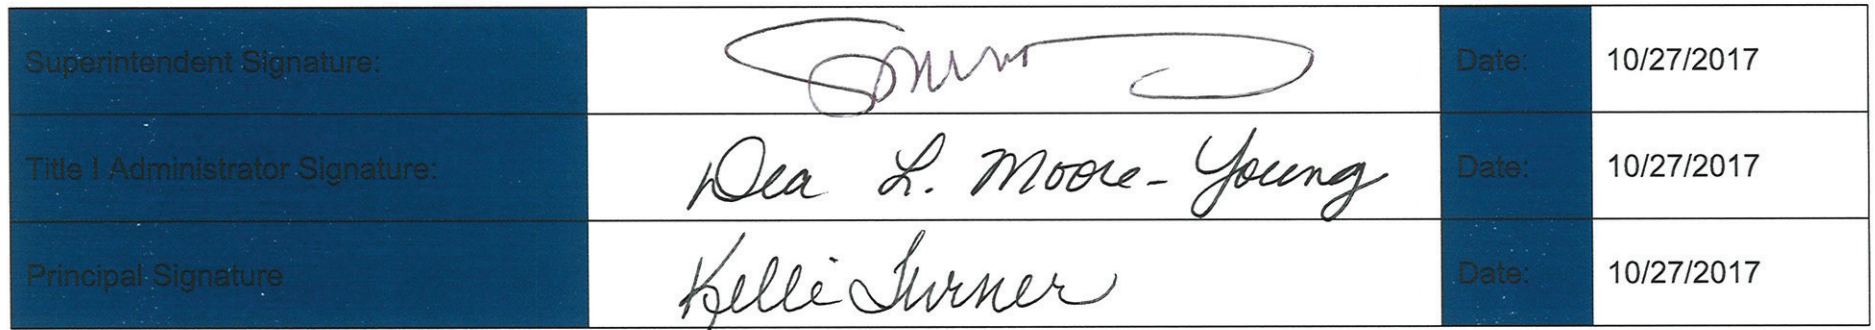 Superintendent Signature: Date: 10/27/2017
Title I Administrator Signature: Dea L. Moore-Young Date: 10/27/2017
Principal Signature Kelli Turner Date: 10/27/2017